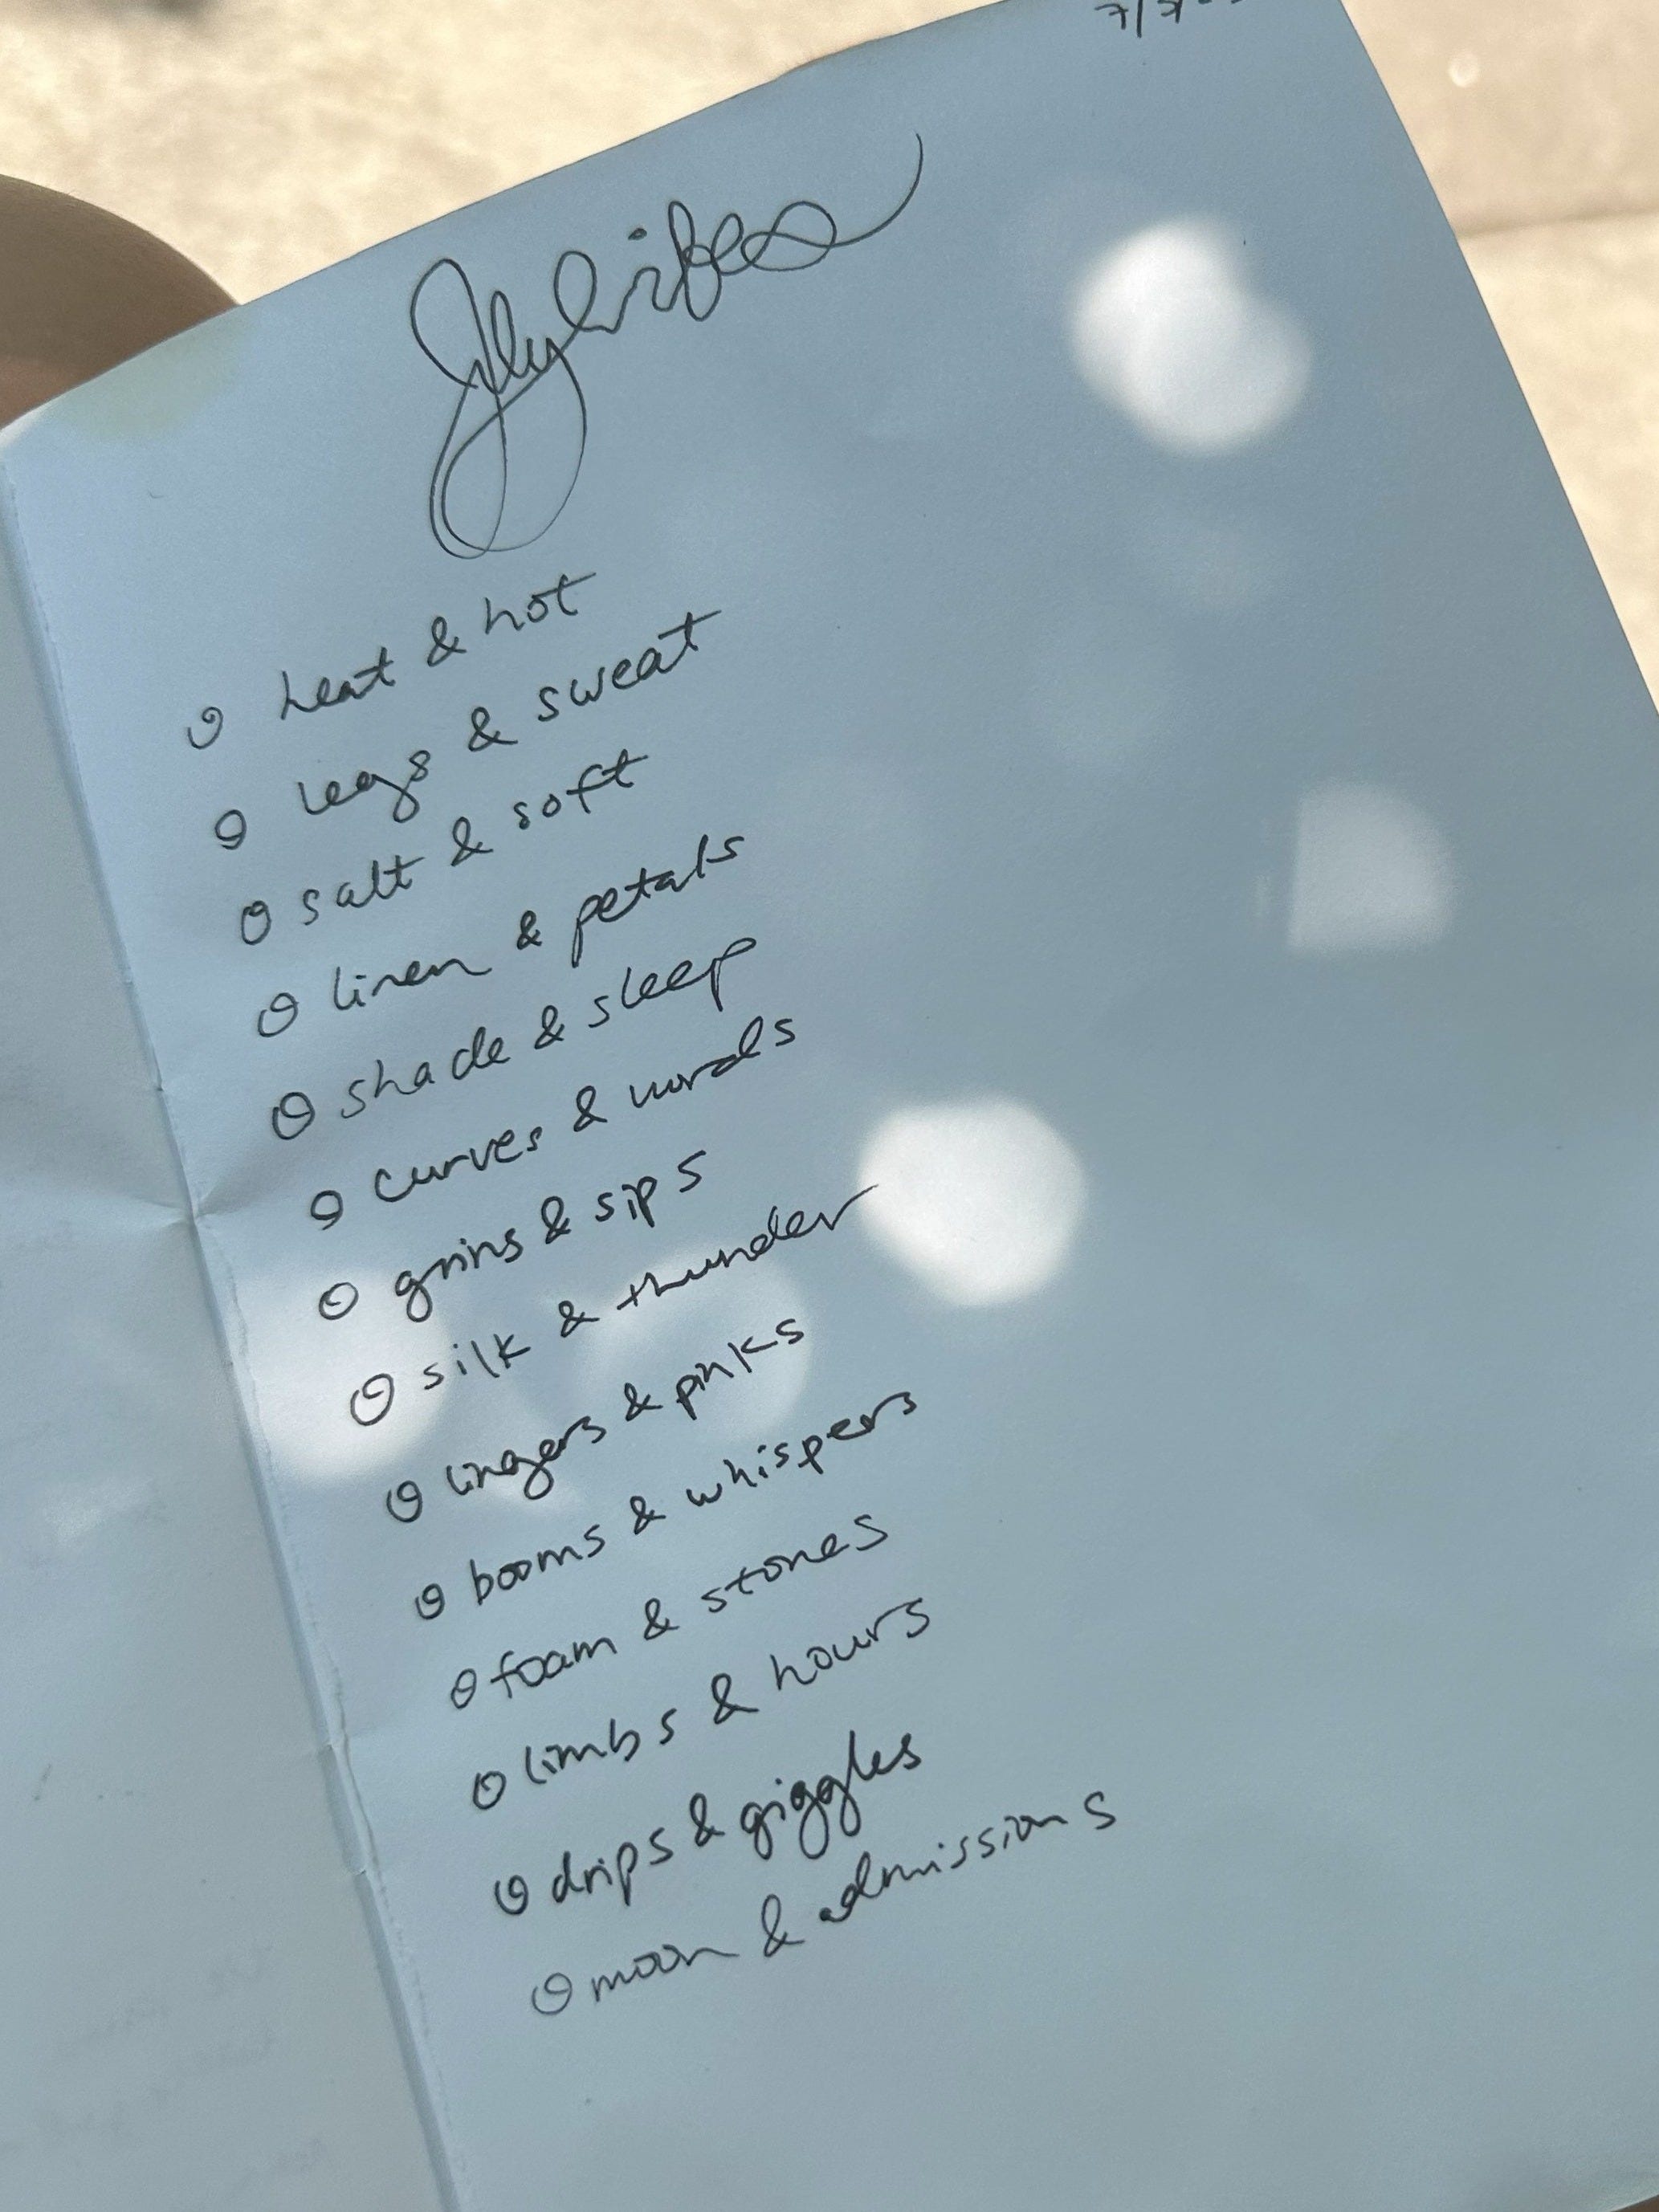 7/7
July vibes
heat & hot
legs & sweat
salt & soft
linen & petals
shade & sleep
curves & words
grins & sips
silk & thunder
lingers & pinks
booms & whispers
foam & stones
limbs & hours
drips & giggles
moon & admissions